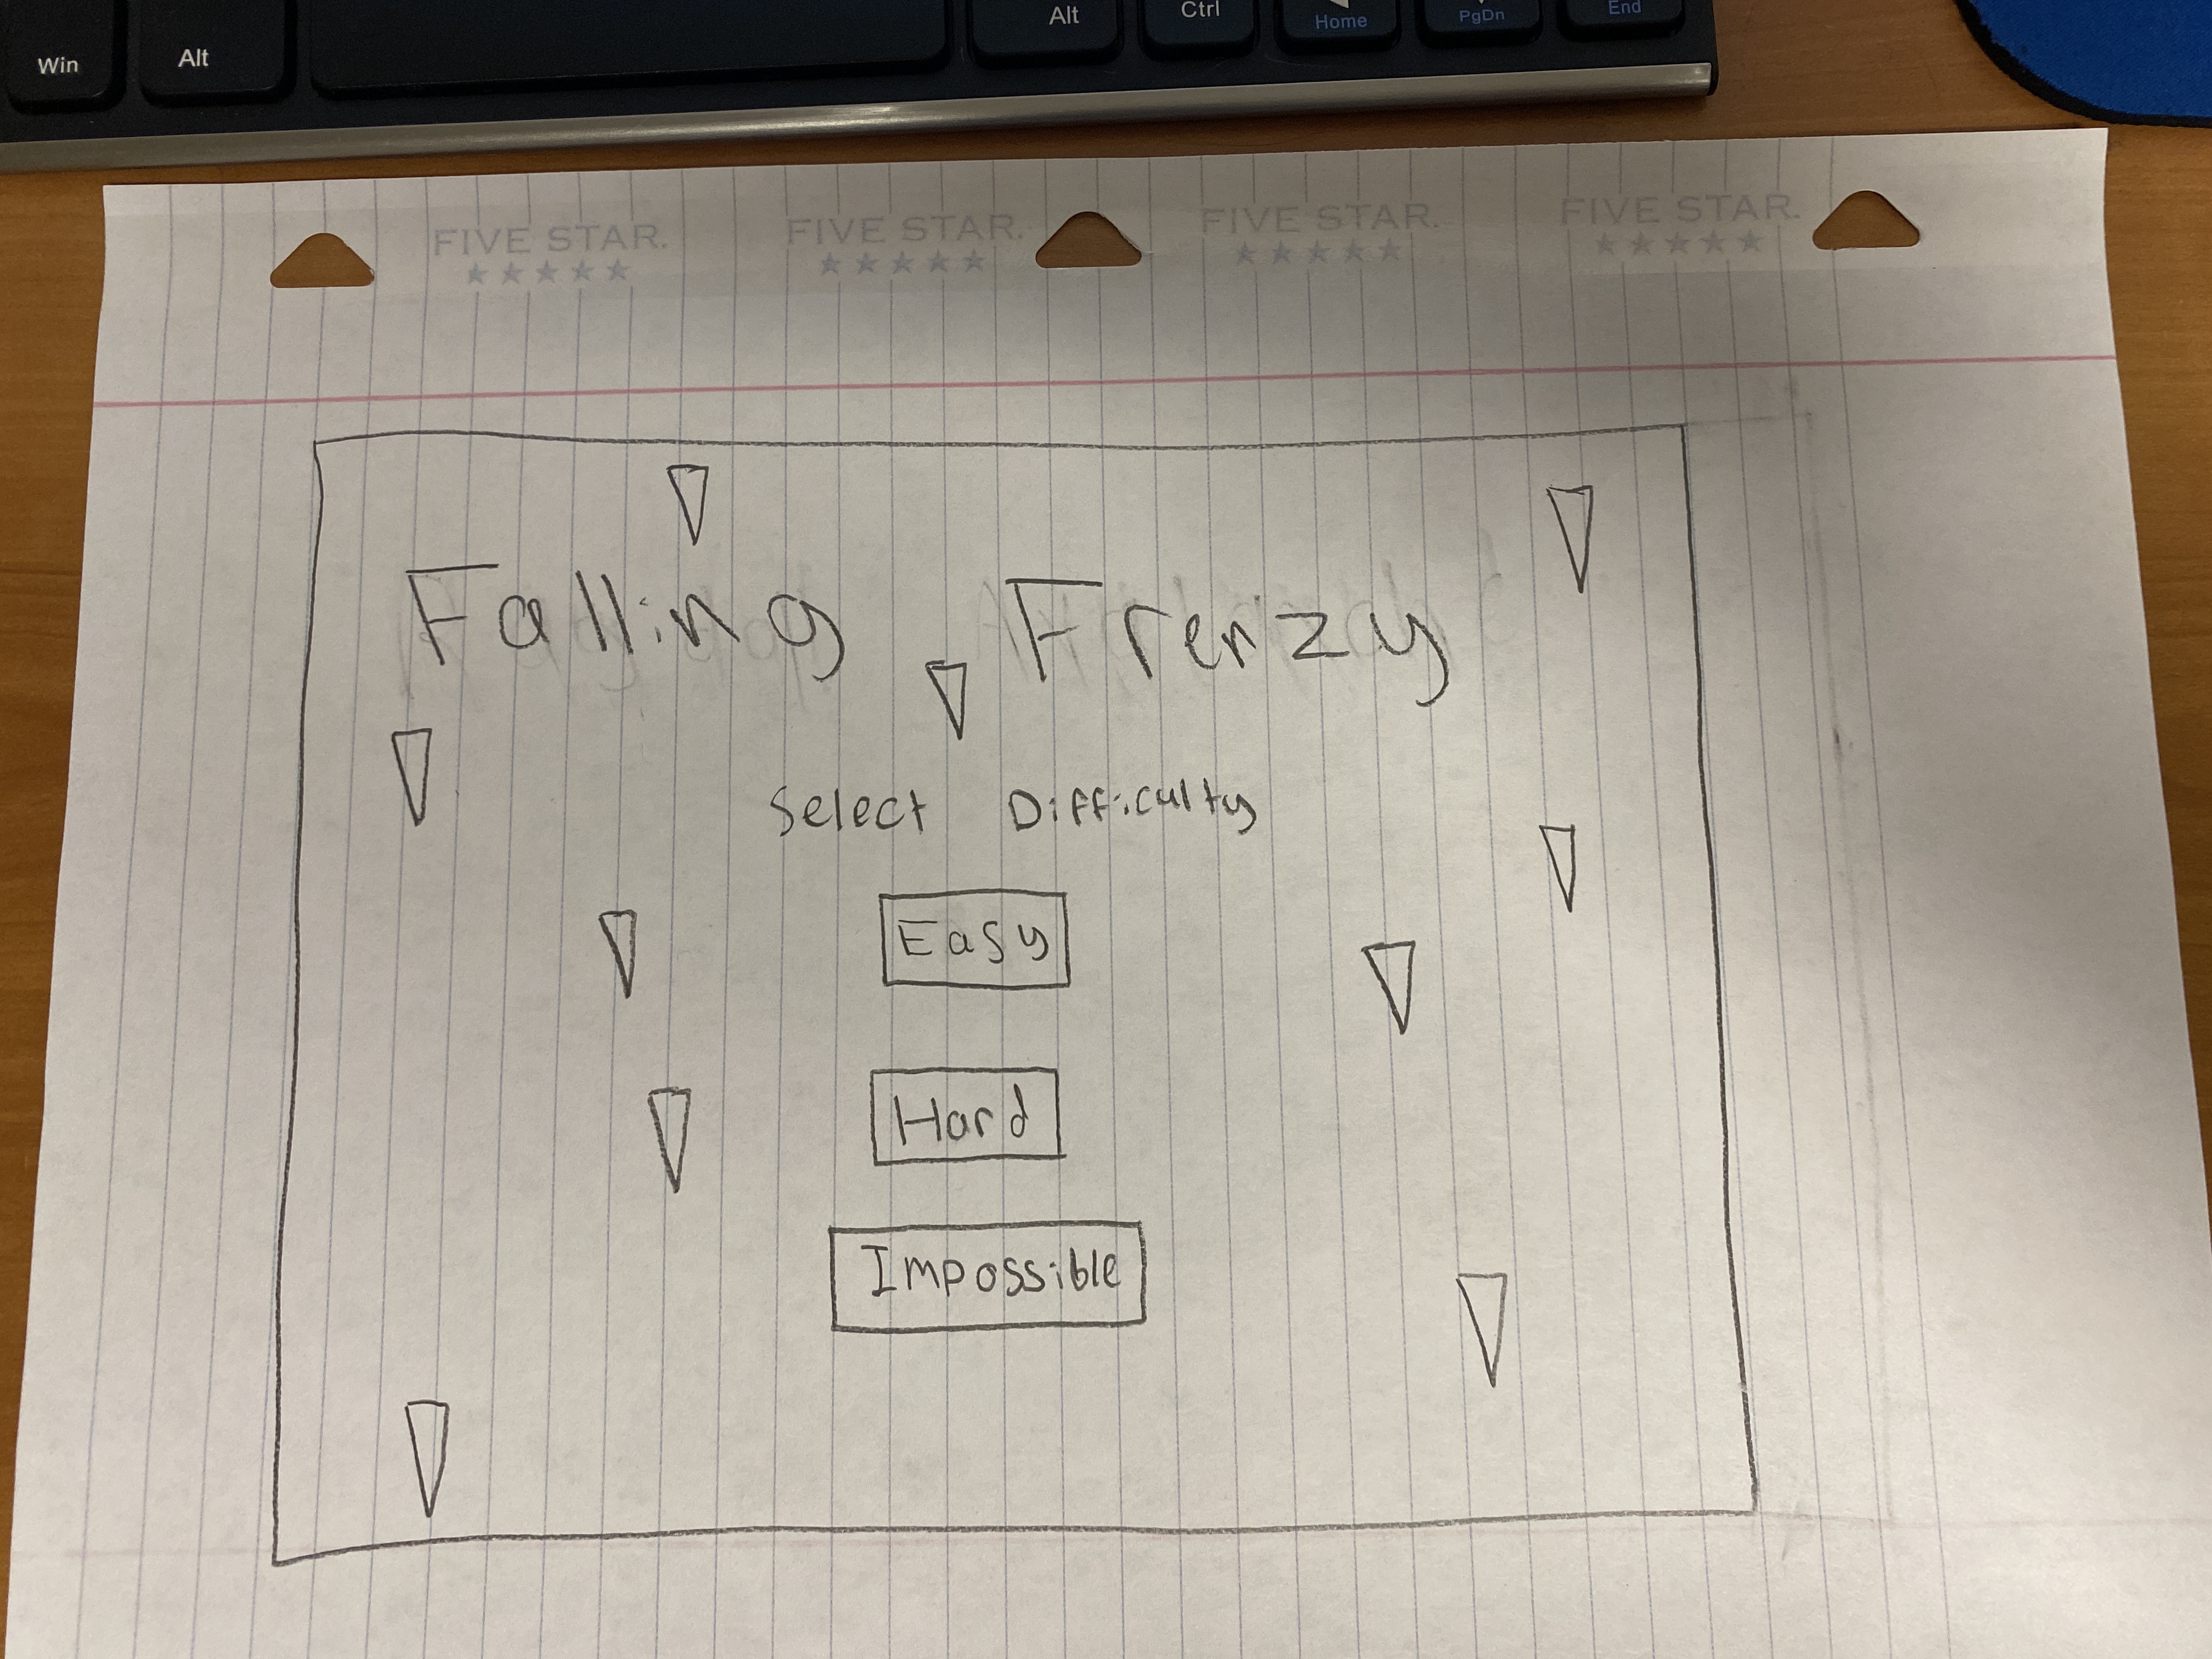 Win Alt Alt Ctrl Home PgDn End
FIVE STAR. FIVE STAR. FIVE STAR. FIVE STAR.
Falling Frenzy
Select Difficulty
Easy
Hard
Impossible